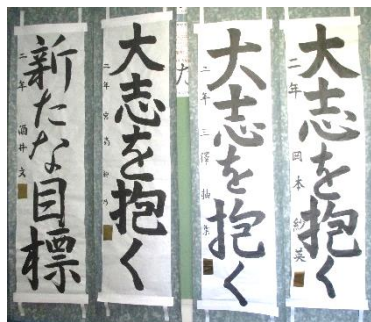 大志を抱く
二年 岡本紗英
大志を抱く
二年 三澤柚
大志を抱く
二年 宮
新たな目標
二年 酒井文